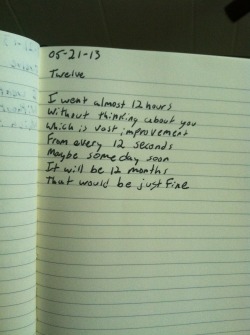 05-21-13
Twelve
I went almost 12 hours
Without thinking about you
Which is vast improvement
From every 12 seconds
Maybe someday soon
It will be 12 months
That would be just fine